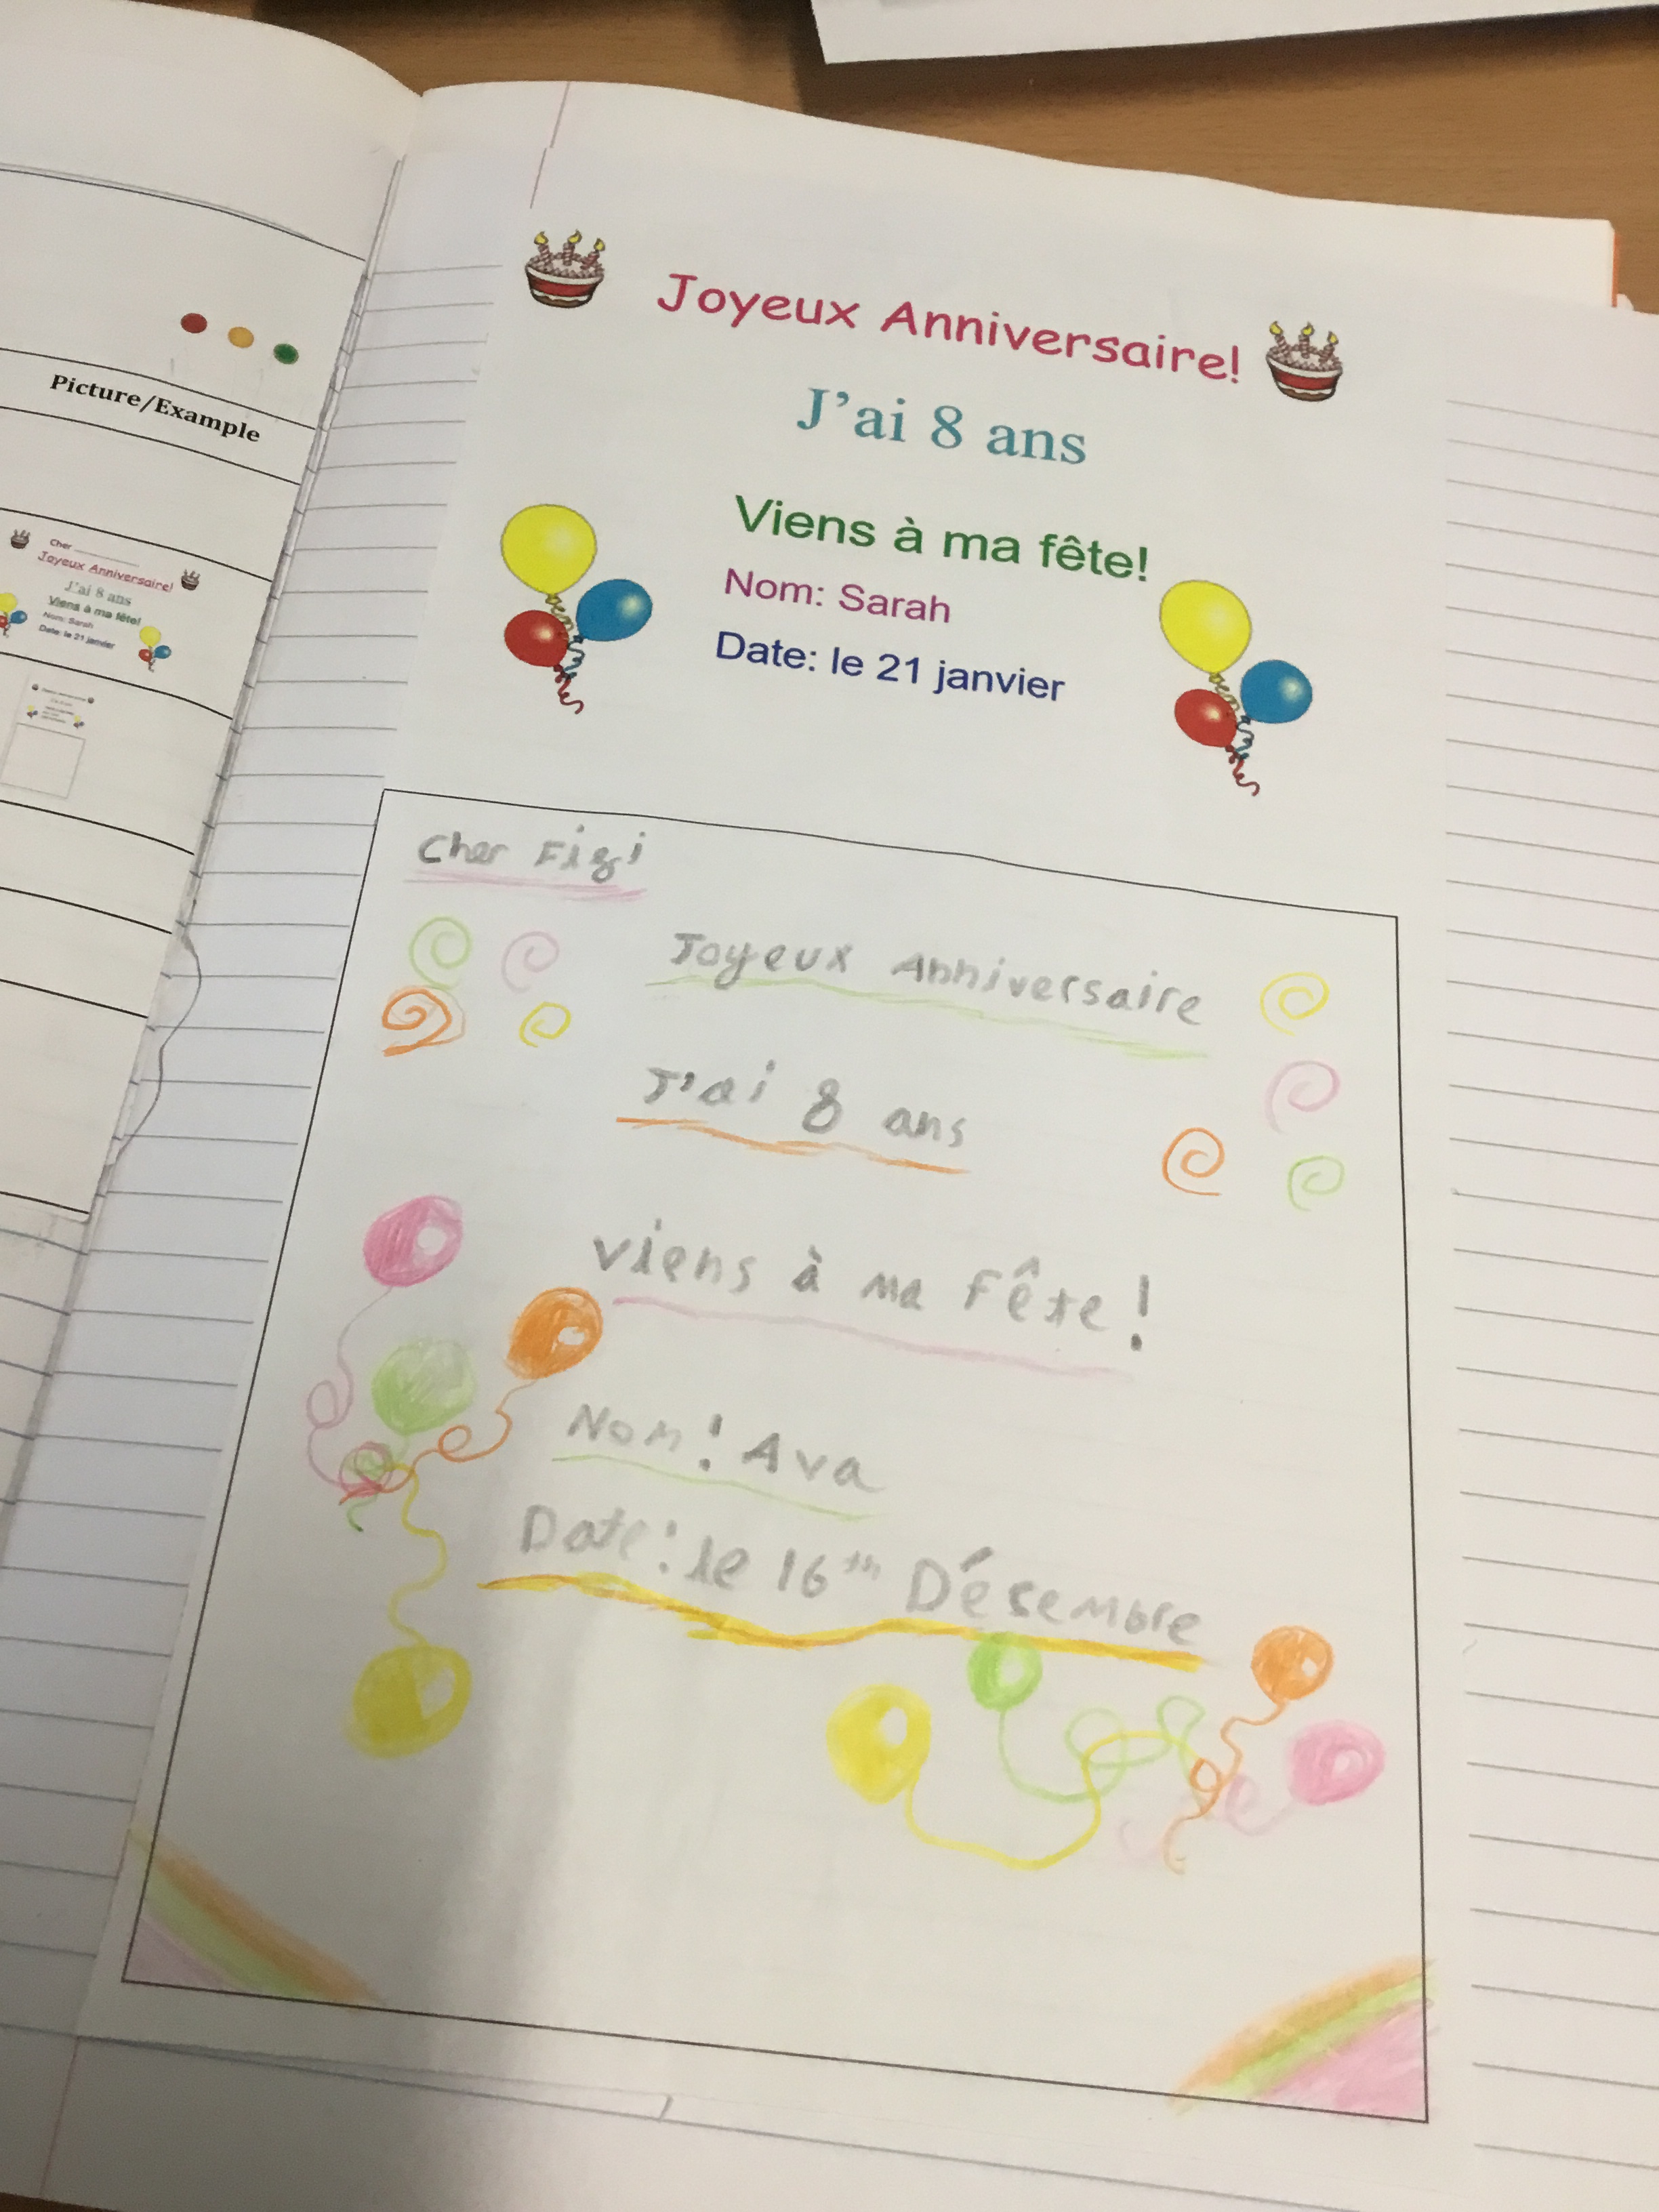 Picture/Example
Cher
Joyeux Anniversaire!
J'ai 8 ans
Viens à ma fête!
Nom: Sarah
Date: le 21 janvier
Joyeux Anniversaire!
J'ai 8 ans
Viens à ma fête!
Nom: Sarah
Date: le 21 janvier
Cher Figi
Joyeux Anniversaire
J'ai 8 ans
viens à ma fête!
Nom! Ava
Date: le 16th Désembre